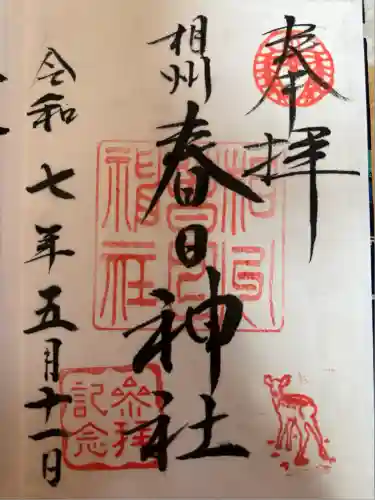 奉拝
相州
春日神社
令和七年五月十一日
参拝
記念